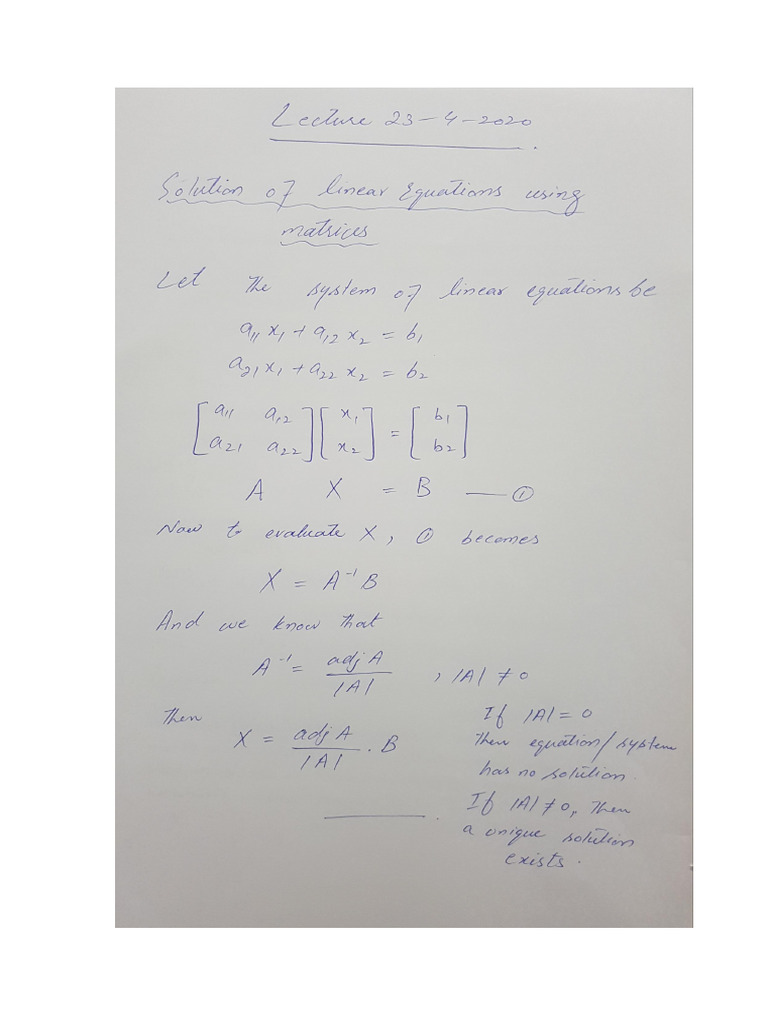 Lecture 23-4-2020.
Solution of linear Equations using
matrices
Let the system of linear equations be
a₁₁x₁ + a₁₂x₂ = b₁
a₂₁x₁ + a₂₂x₂ = b₂
[a₁₁ a₁₂] [x₁] = [b₁]
[a₂₁ a₂₂] [x₂] [b₂]
A X = B — ①
Now to evaluate X, ① becomes
X = A⁻¹B
And we know that
A⁻¹ = adj A / |A| , |A| ≠ 0
Then
X = adj A / |A| . B
If |A| = 0
Then equation/system
has no solution.
If |A| ≠ 0, Then
a unique solution
exists.